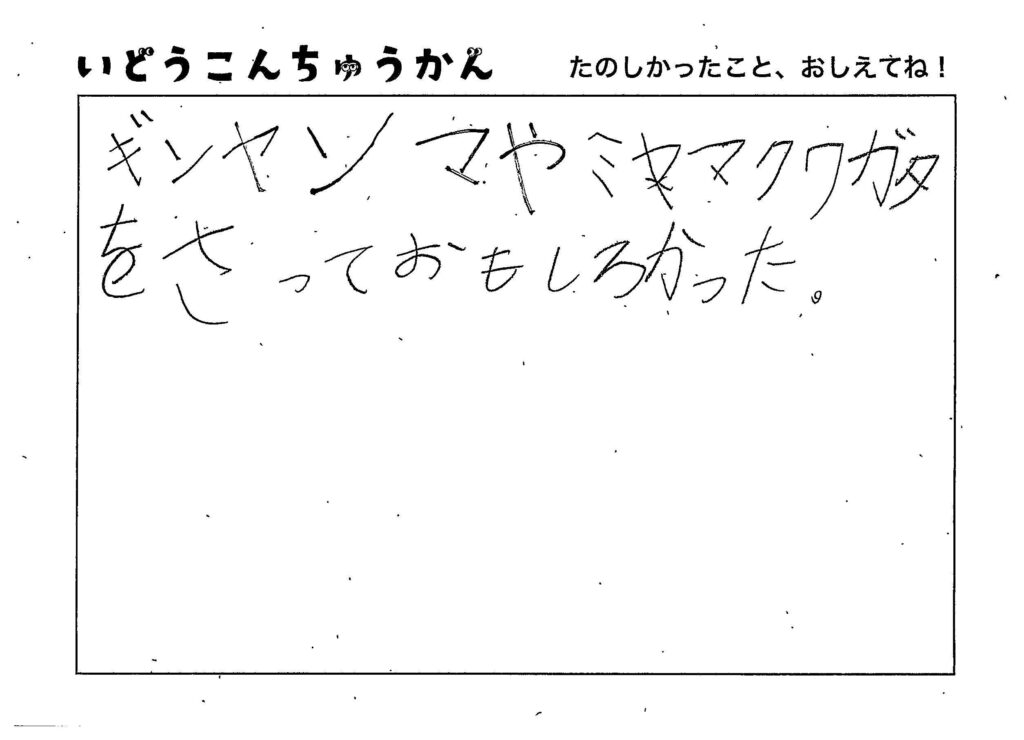 いどうこんちゅうかん
たのしかったこと、おしえてね！
ギンヤンマやミヤマクワガタ
をさわっておもしろかった。